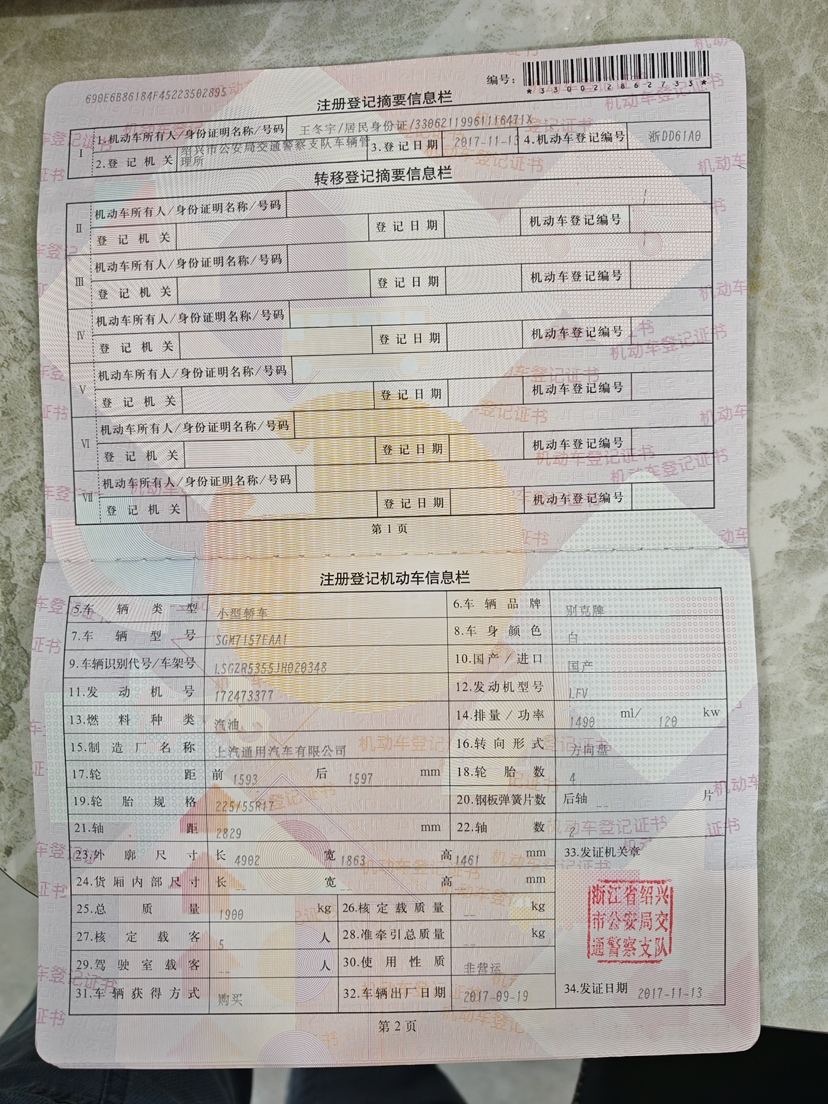 690E6B86184F45223502895
编号：
*330022862733*
注册登记摘要信息栏
Ⅰ 1.机动车所有人/身份证明名称/号码 王冬宇/居民身份证/33062119961116471X
2.登记机关 绍兴市公安局交通警察支队车辆管理所 3.登记日期 2017-11-13 4.机动车登记编号 浙DD61A0
转移登记摘要信息栏
Ⅱ 机动车所有人/身份证明名称/号码
登记机关 登记日期 机动车登记编号
Ⅲ 机动车所有人/身份证明名称/号码
登记机关 登记日期 机动车登记编号
Ⅳ 机动车所有人/身份证明名称/号码
登记机关 登记日期 机动车登记编号
Ⅴ 机动车所有人/身份证明名称/号码
登记机关 登记日期 机动车登记编号
Ⅵ 机动车所有人/身份证明名称/号码
登记机关 登记日期 机动车登记编号
Ⅶ 机动车所有人/身份证明名称/号码
登记机关 登记日期 机动车登记编号
第1页
注册登记机动车信息栏
5.车辆类型 小型轿车 6.车辆品牌 别克牌
7.车辆型号 SGM7157EAA1 8.车身颜色 白
9.车辆识别代号/车架号 LSGZR5355JH020348 10.国产/进口 国产
11.发动机号 172473377 12.发动机型号 LFV
13.燃料种类 汽油 14.排量/功率 1490 ml/ 120 kw
15.制造厂名称 上汽通用汽车有限公司 16.转向形式 方向盘
17.轮距 前 1593 后 1597 mm 18.轮胎数 4
19.轮胎规格 225/55R17 20.钢板弹簧片数 后轴 -- 片
21.轴距 2829 mm 22.轴数 2
23.外廓尺寸 长 4902 宽 1863 高 1461 mm 33.发证机关章
24.货厢内部尺寸 长 宽 -- 高 mm
25.总质量 1900 kg 26.核定载质量 -- kg
27.核定载客 5 人 28.准牵引总质量 -- kg
29.驾驶室载客 -- 人 30.使用性质 非营运
31.车辆获得方式 购买 32.车辆出厂日期 2017-09-19 34.发证日期 2017-11-13
浙江省绍兴
市公安局交
通警察支队
第2页